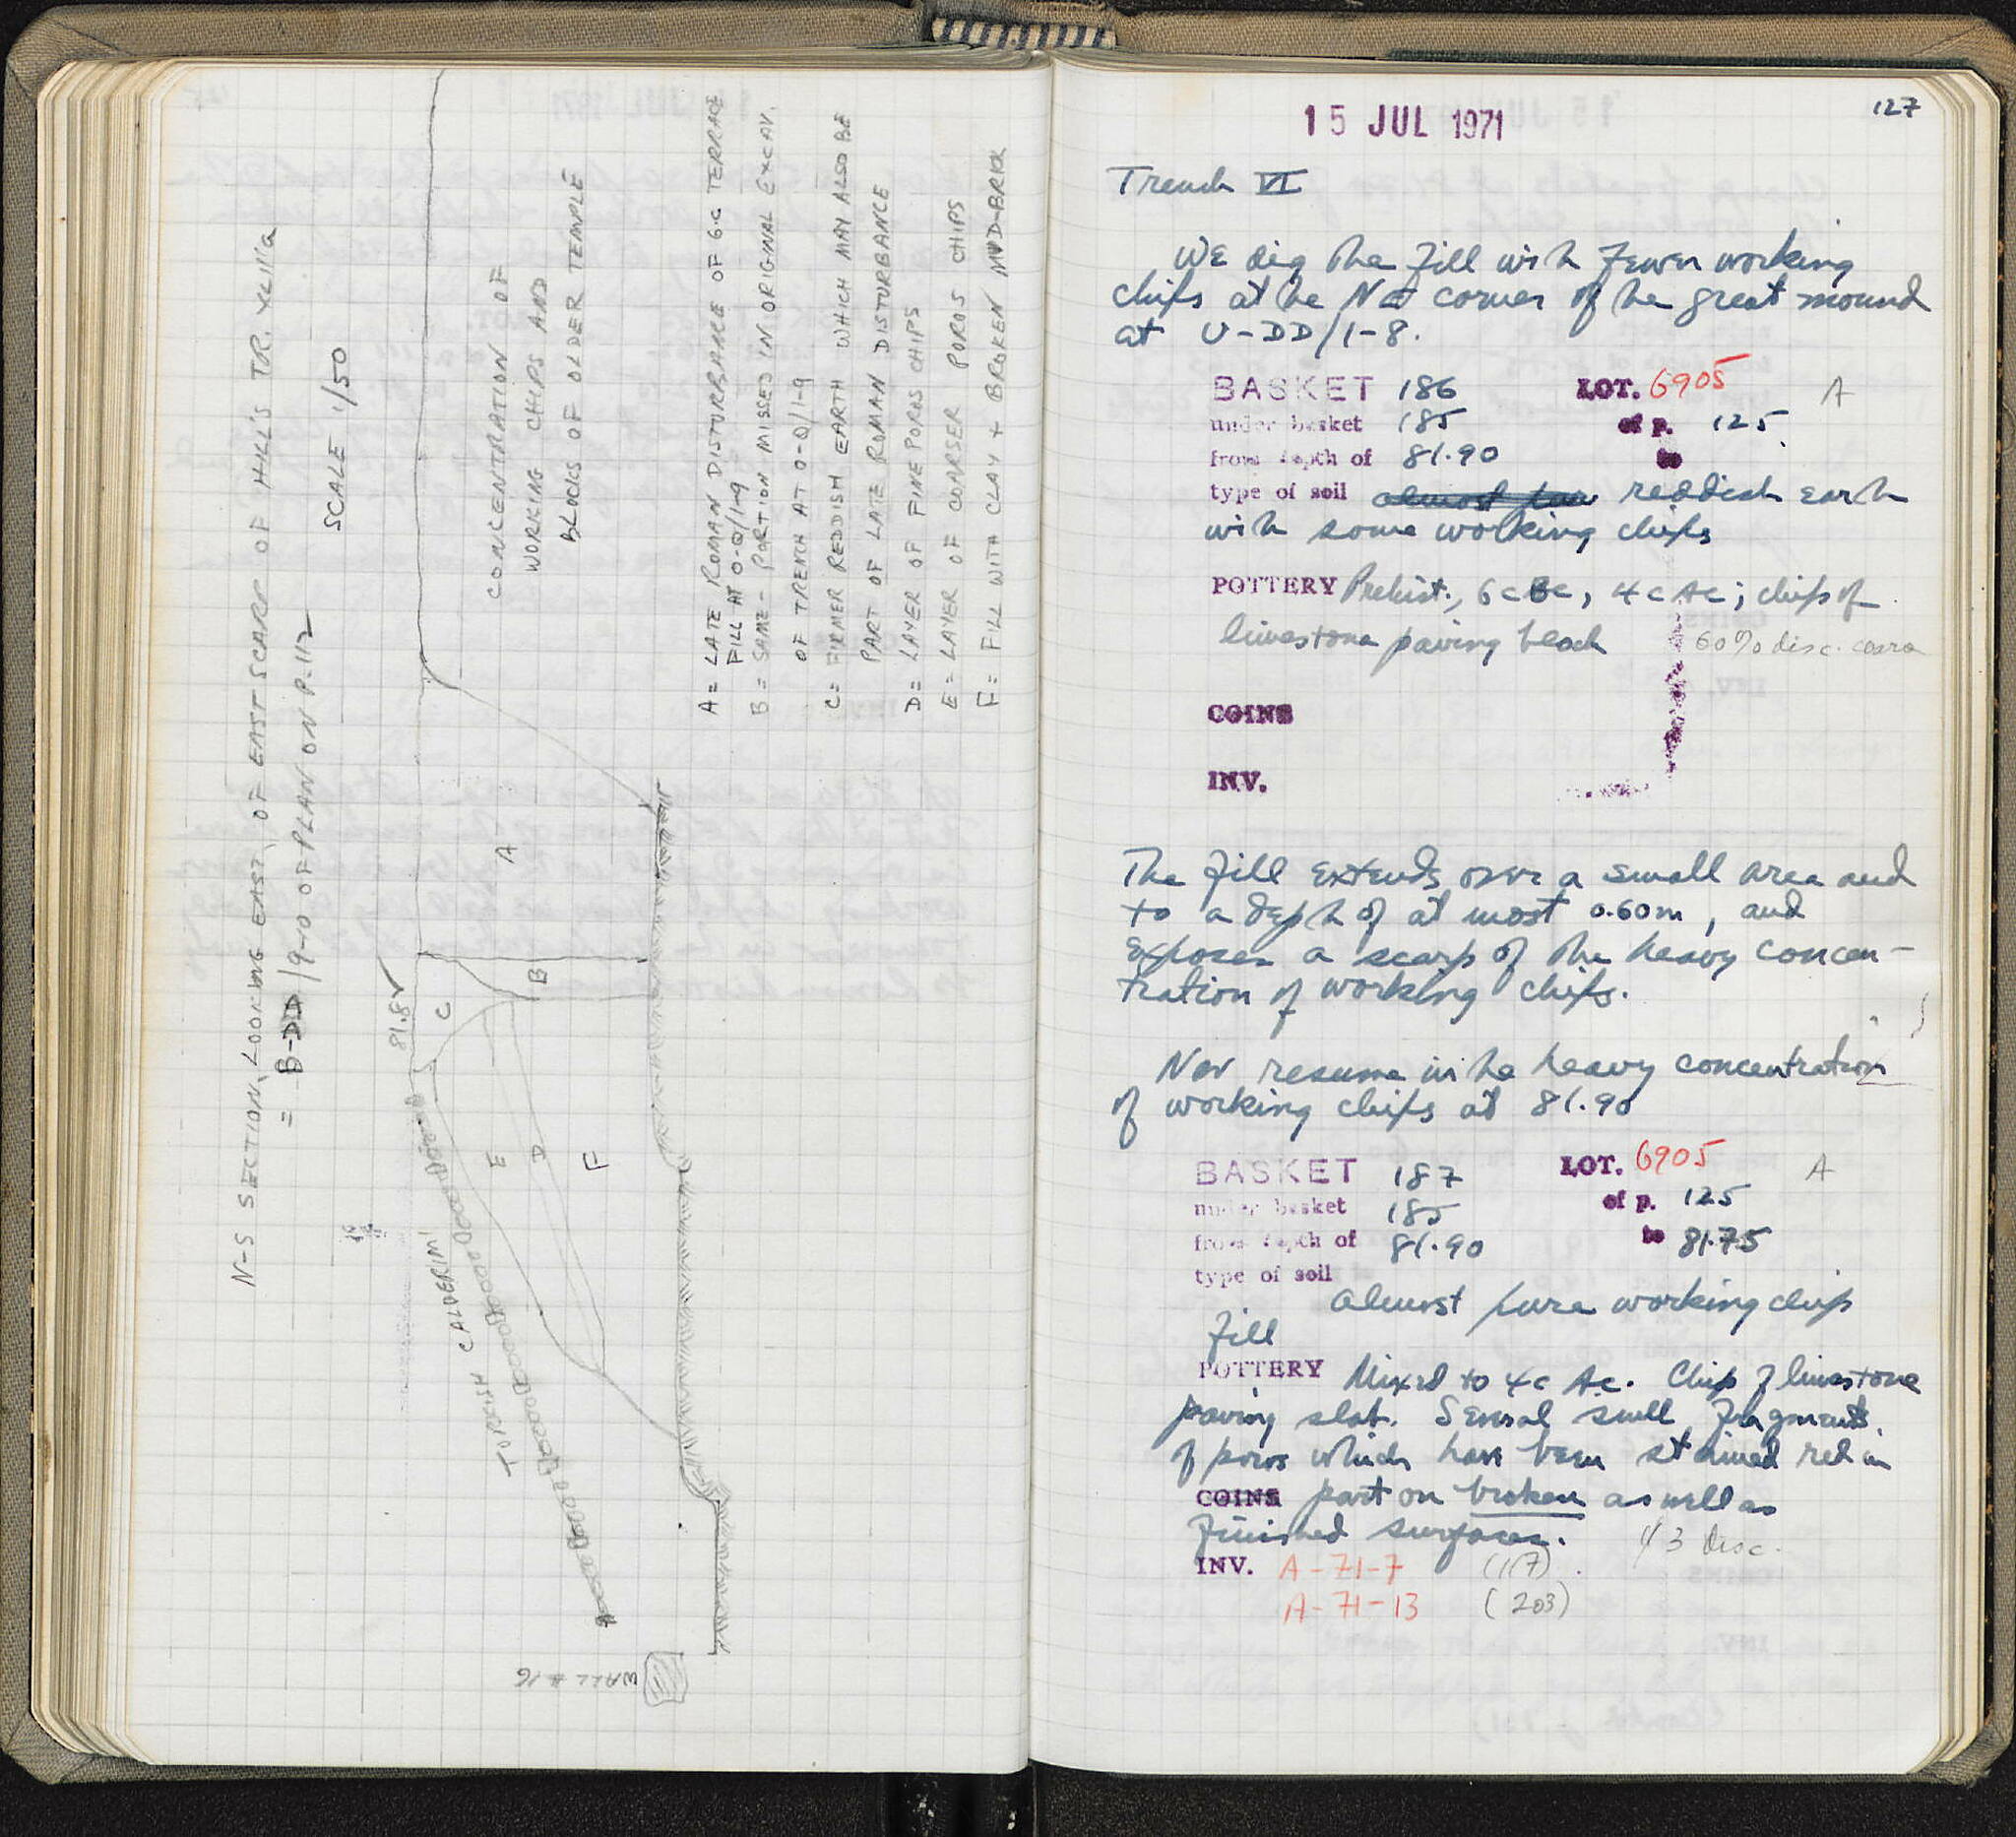 N-S SECTION, LOOKING EAST, OF EAST SCARP OF HILL'S TR. XLII'a
= B-DD/9-10 OF PLAN ON P. 112
SCALE 1/50
81.8
CONCENTRATION OF
WORKING CHIPS AND
BLOCKS OF OLDER TEMPLE
TURKISH CALDERIMI
A
B
C
E
D
F
WALL #16
A = LATE ROMAN DISTURBANCE OF 6.C TERRACE
FILL AT O-Q/1-9
B = SAME - PORTION MISSED IN ORIGINAL EXCAV.
OF TRENCH AT O-Q/1-9
C = FIRMER REDDISH EARTH WHICH MAY ALSO BE
PART OF LATE ROMAN DISTURBANCE
D = LAYER OF FINE POROS CHIPS
E = LAYER OF COARSER POROS CHIPS
F = FILL WITH CLAY + BROKEN MUD-BRICK
127
15 JUL 1971
Trench VI
We dig the fill with fewer working
chips at the NE corner of the great mound
at U-DD/1-8.
BASKET 186 LOT. 6905 A
under basket 185 of p. 125
from depth of 81.90 to
type of soil almost pure reddish earth
with some working chips
POTTERY Prehist., 6c BC, 4c AC; chips of
limestone paving block 60% disc. coarse
COINS
INV.
The fill extends over a small area and
to a depth of at most 0.60m, and
exposes a scarp of the heavy concen-
tration of working chips.
Now resume in the heavy concentration
of working chips at 81.90
BASKET 187 LOT. 6905 A
under basket 185 of p. 125
from depth of 81.90 to 81.75
type of soil
almost pure working chip
fill
POTTERY Mixed to 4c Ac. Chip of limestone
paving slab. Several small fragments
of poros which have been stained red in
COINS part on broken as well as
finished surfaces. 1/3 disc.
INV. A-71-7 (167)
A-71-13 (203)